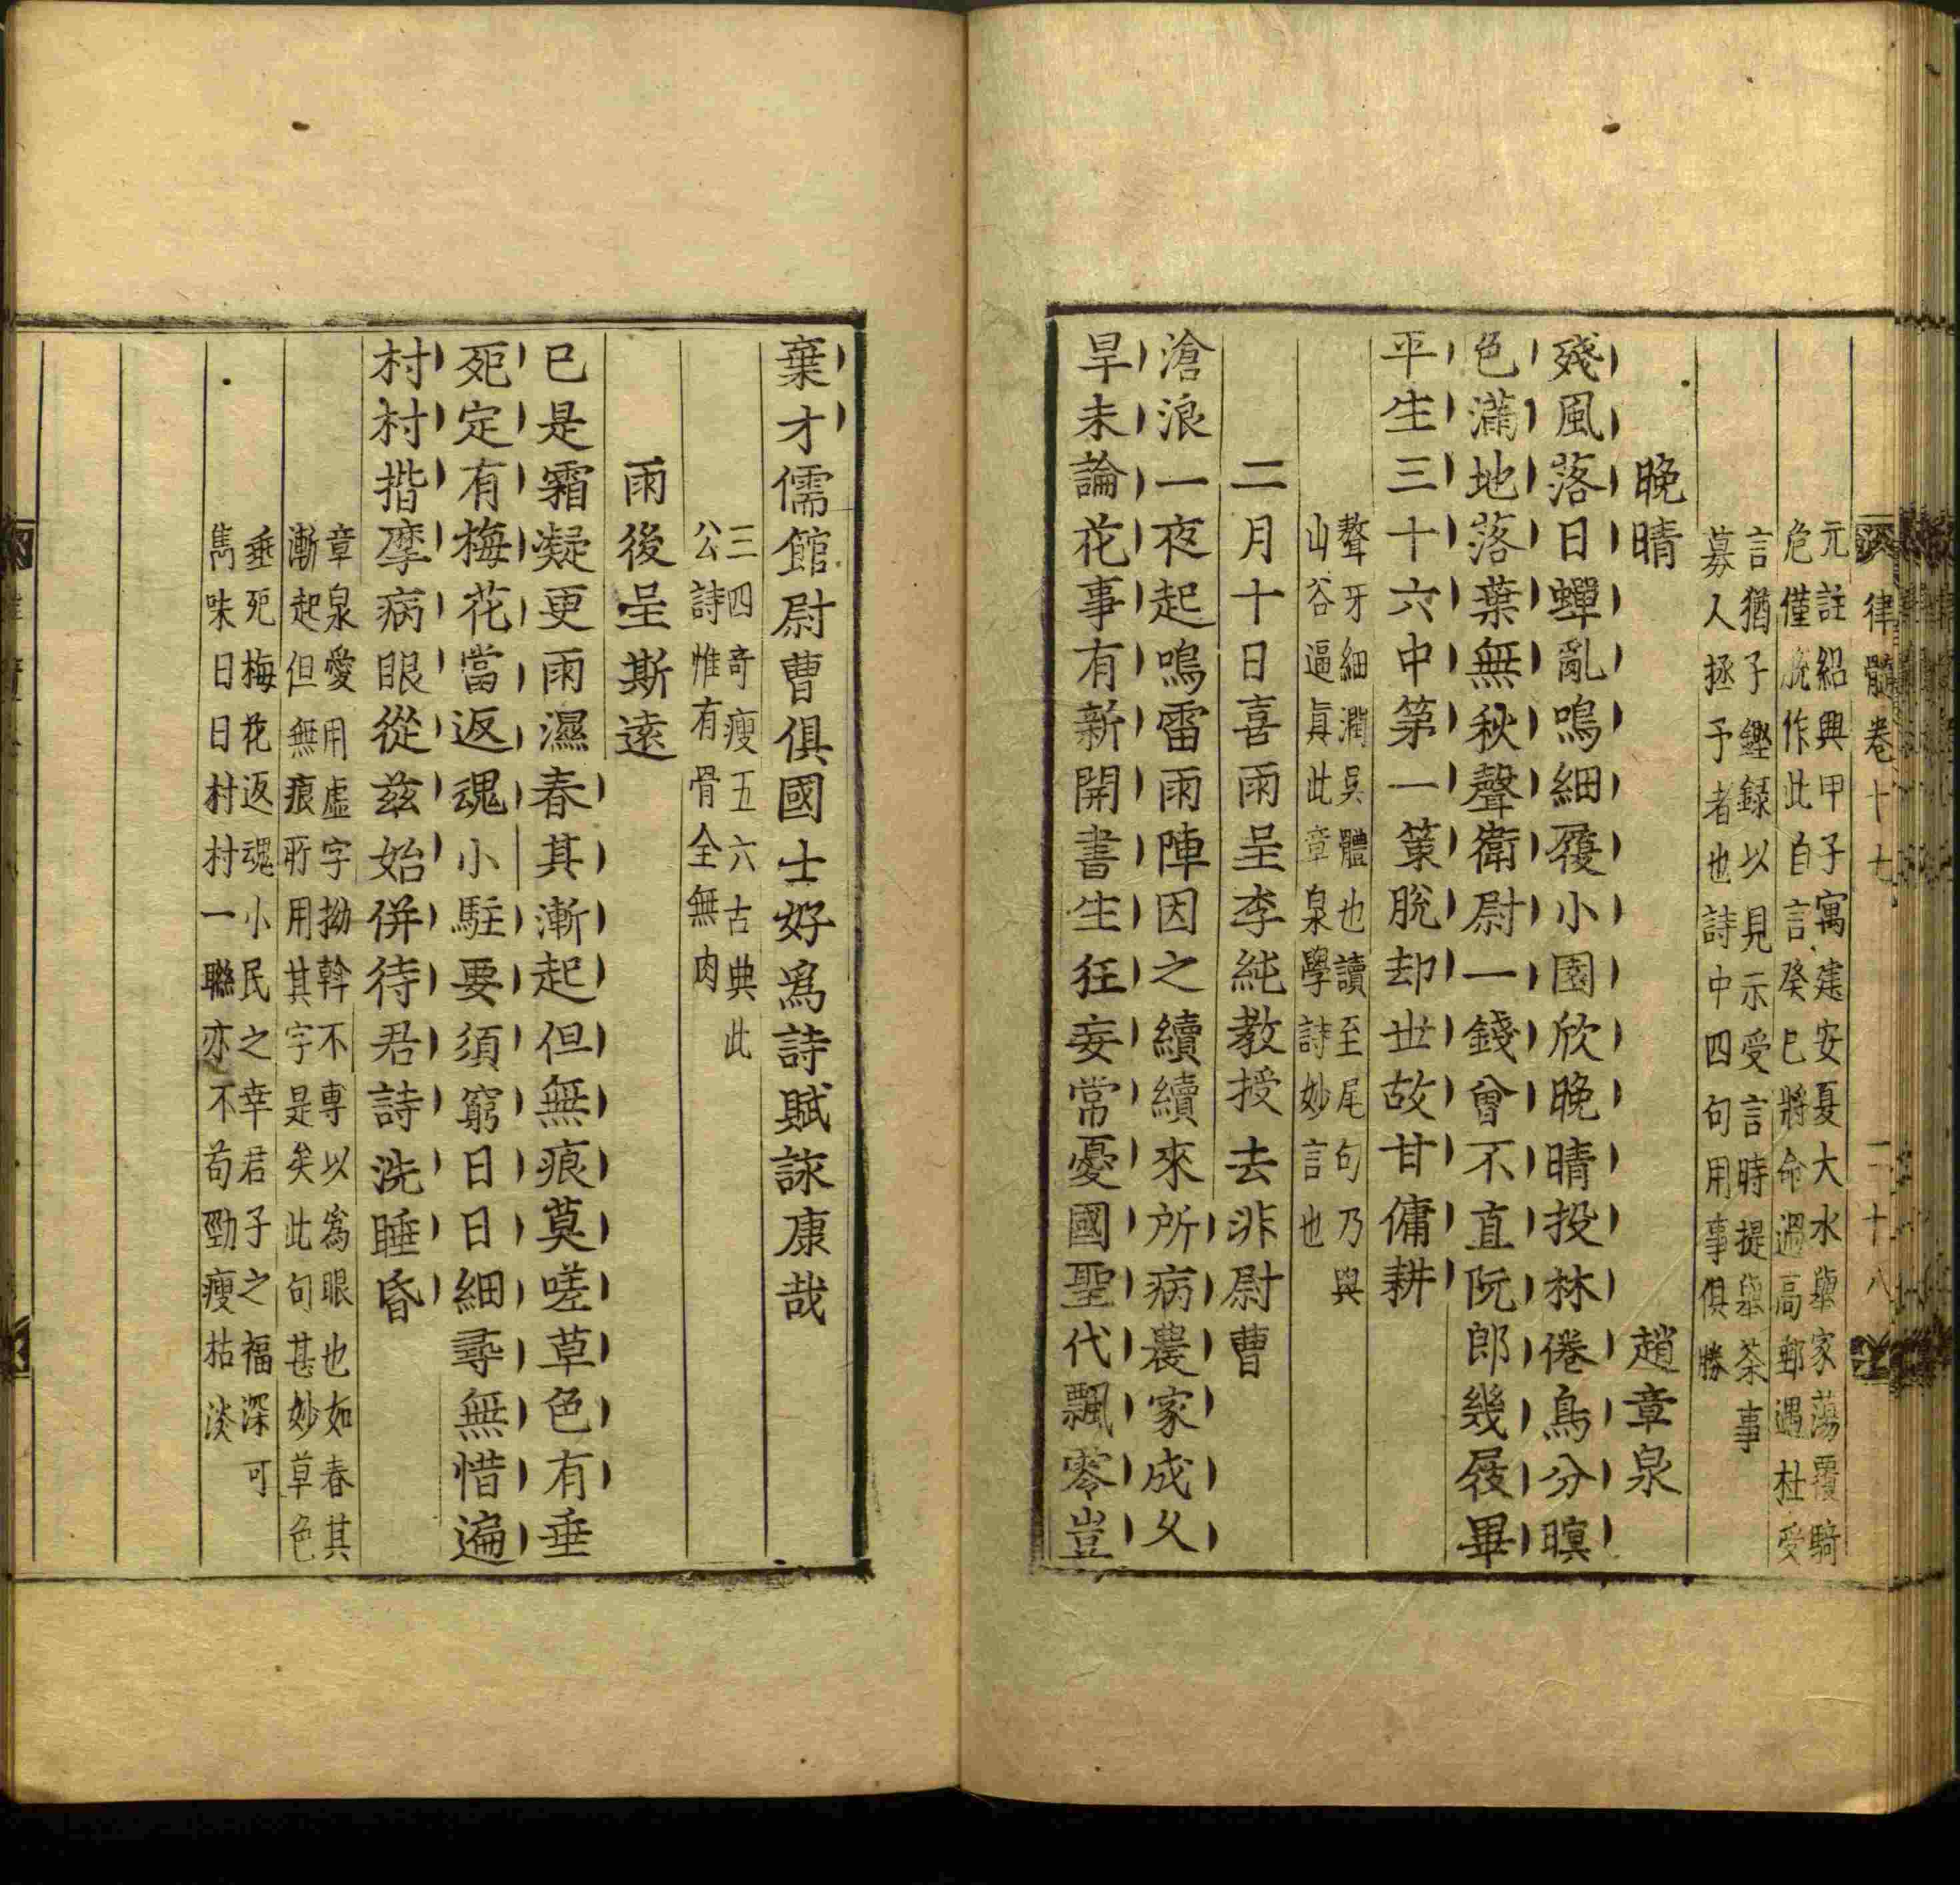 律髓卷十七 二十八
元註紹興甲子寓建安夏大水舉家蕩覆騎
危僅脫作此自言癸巳將命過高郵遇杜受
言猶子鏗録以見示受言時提舉茶事
募人拯予者也詩中四句用事俱勝
晚晴 趙章泉
殘風落日蟬亂鳴細履小園欣晚晴投林倦鳥分暝
色滿地落葉無秋聲衛尉一錢曾不直阮郎幾屐畢
平生三十六中第一策脫却丗故甘傭耕
聱牙細潤吳體也讀至尾句乃與
山谷逼眞此章泉學詩妙言也
二月十日喜雨呈李純教授去非尉曹
滄浪一夜起鳴雷雨陣因之續續來所病農家成久
旱未論花事有新開書生狂妄常憂國聖代飄零豈
棄才儒館尉曹俱國士好爲詩賦詠康哉
三四奇瘦五六古典此
公詩惟有骨全無肉
雨後呈斯遠
已是霜凝更雨濕春其漸起但無痕莫嗟草色有垂
死定有梅花當返魂小駐要須窮日日細尋無惜遍
村村揩摩病眼從兹始併待君詩洗睡昏
章泉愛用虛字拗斡不專以爲眼也如春其
漸起但無痕所用其字是矣此句甚妙草色
垂死梅花返魂小民之幸君子之福深可
雋味日日村村一聮亦不苟勁瘦枯淡